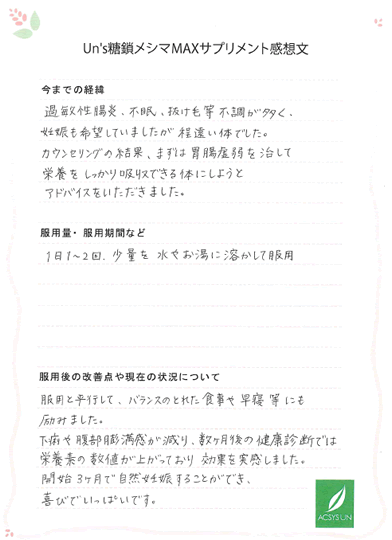 Un's糖鎖メシマMAXサプリメント感想文
今までの経緯
過敏性腸炎、不眠、抜け毛等不調が多く、
妊娠も希望していましたが程遠い体でした。
カウンセリングの結果、まずは胃腸症弱を治して
栄養をしっかり吸収できる体にしようと
アドバイスをいただきました。
服用量・服用期間など
1日1〜2回、少量を水やお湯に溶かして服用
服用後の改善点や現在の状況について
服用と平行して、バランスのとれた食事や早寝等にも
励みました。
下痢や腹部膨満感が減り、数ヶ月後の健康診断では
栄養素の数値が上がっており効果を実感しました。
開始3ヶ月で自然妊娠することができ、
喜びでいっぱいです。
ACSYS UN